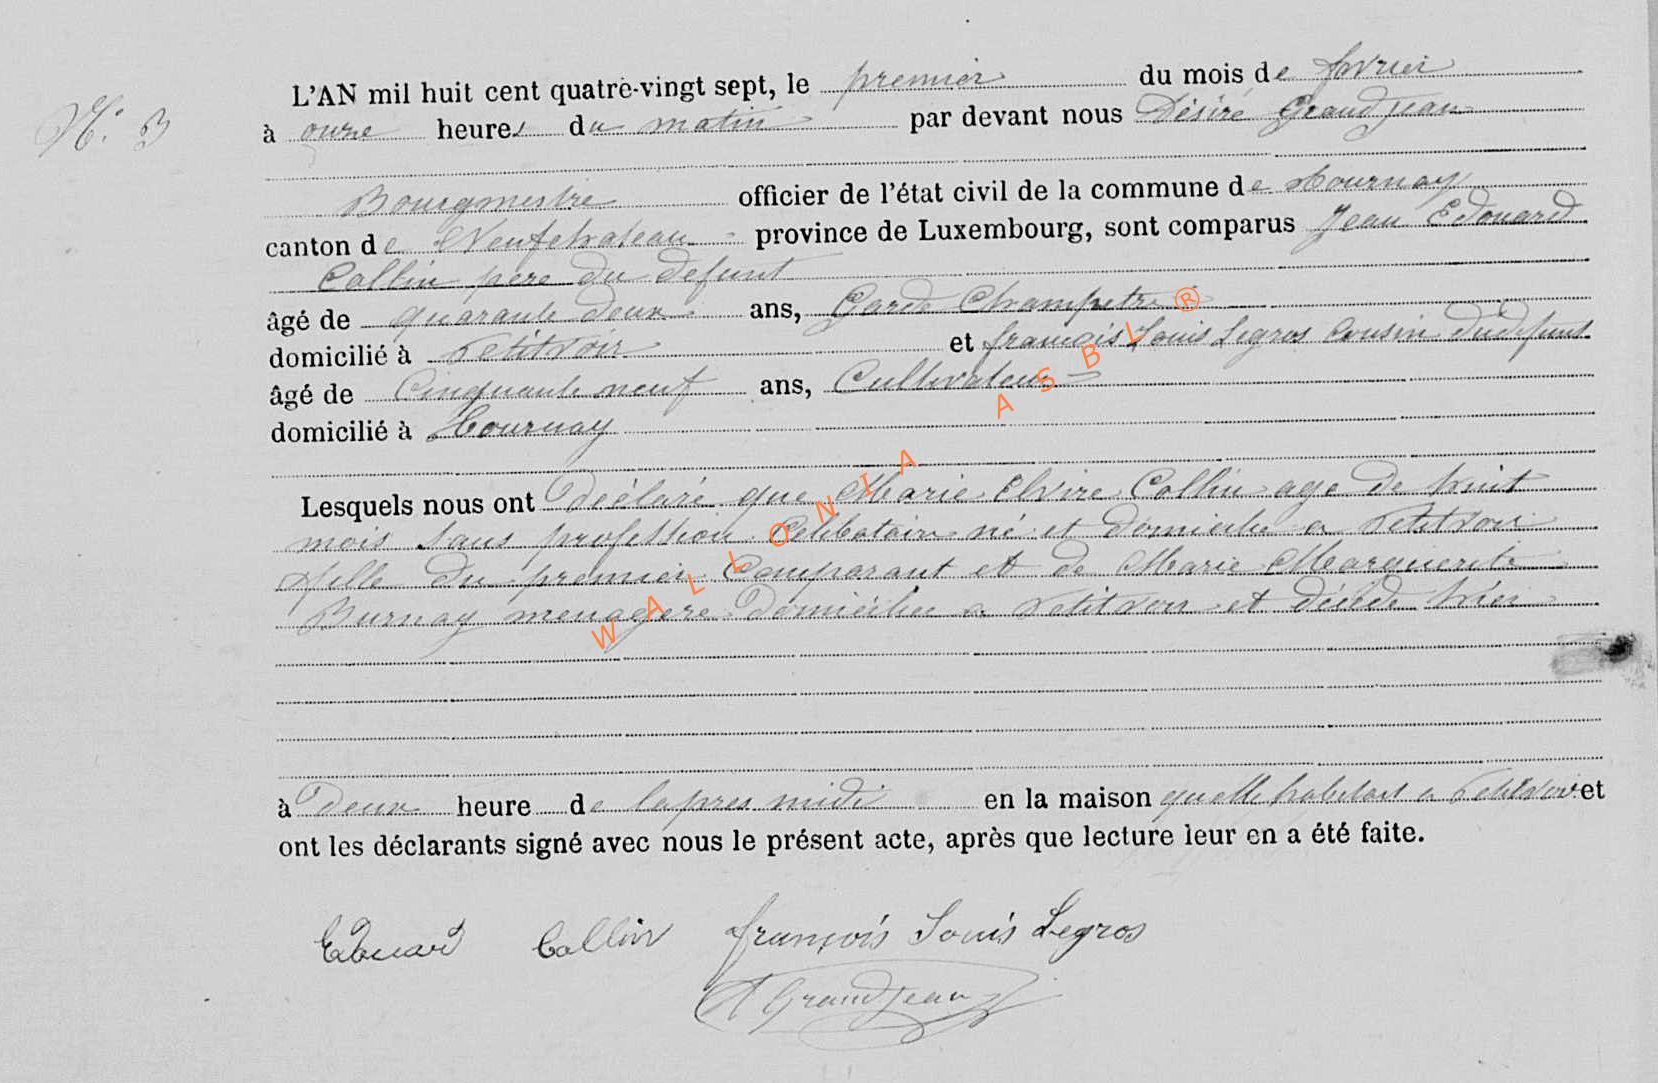 N° 3
L'AN mil huit cent quatre-vingt sept, le premier du mois de fevrier
à onze heures du matin par devant nous Désiré Grandjean
Bourgmestre officier de l'état civil de la commune de Tournay
canton de Neufchateau province de Luxembourg, sont comparus Jean Edouard
Collin pere du defunt
âgé de quarante deux ans, Garde Champetre
domicilié à Petitvoir et françois Louis Legros Cousin du defunt
âgé de Cinquante neuf ans, Cultivateur
domicilié à Tournay
Lesquels nous ont Déclaré que Marie Elvire Collin age de huit
mois sans profession Celibataire né et domicilie a Petitvoir
fille du premier Comparant et de Marie Marguerite
Burnay menagere Domiciliee a Petitvoir et décédé hier
à Deux heure de lapres midi en la maison quelle habitait a Petitvoir et
ont les déclarants signé avec nous le présent acte, après que lecture leur en a été faite.
Edouard Collin françois Louis Legros
D Grandjean
WALLONIA ASBL ®